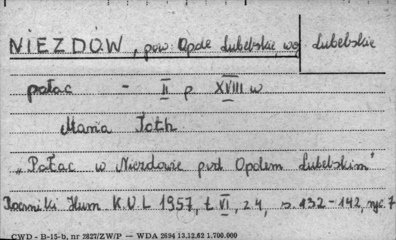 NIEZDÓW, pow. Opole Lubelskie, woj. Lubelskie
pałac - II p. XVIII w
Maria Toth
„Pałac w Niezdowie pod Opolem Lubelskim"
Roczniki Hum K.U.L 1957, t. VI, z.4, s. 132-142, ryc. 7
CWD - B-15-b, nr 2827/ZW/P — WDA 2694 13.12.62 1.700.000